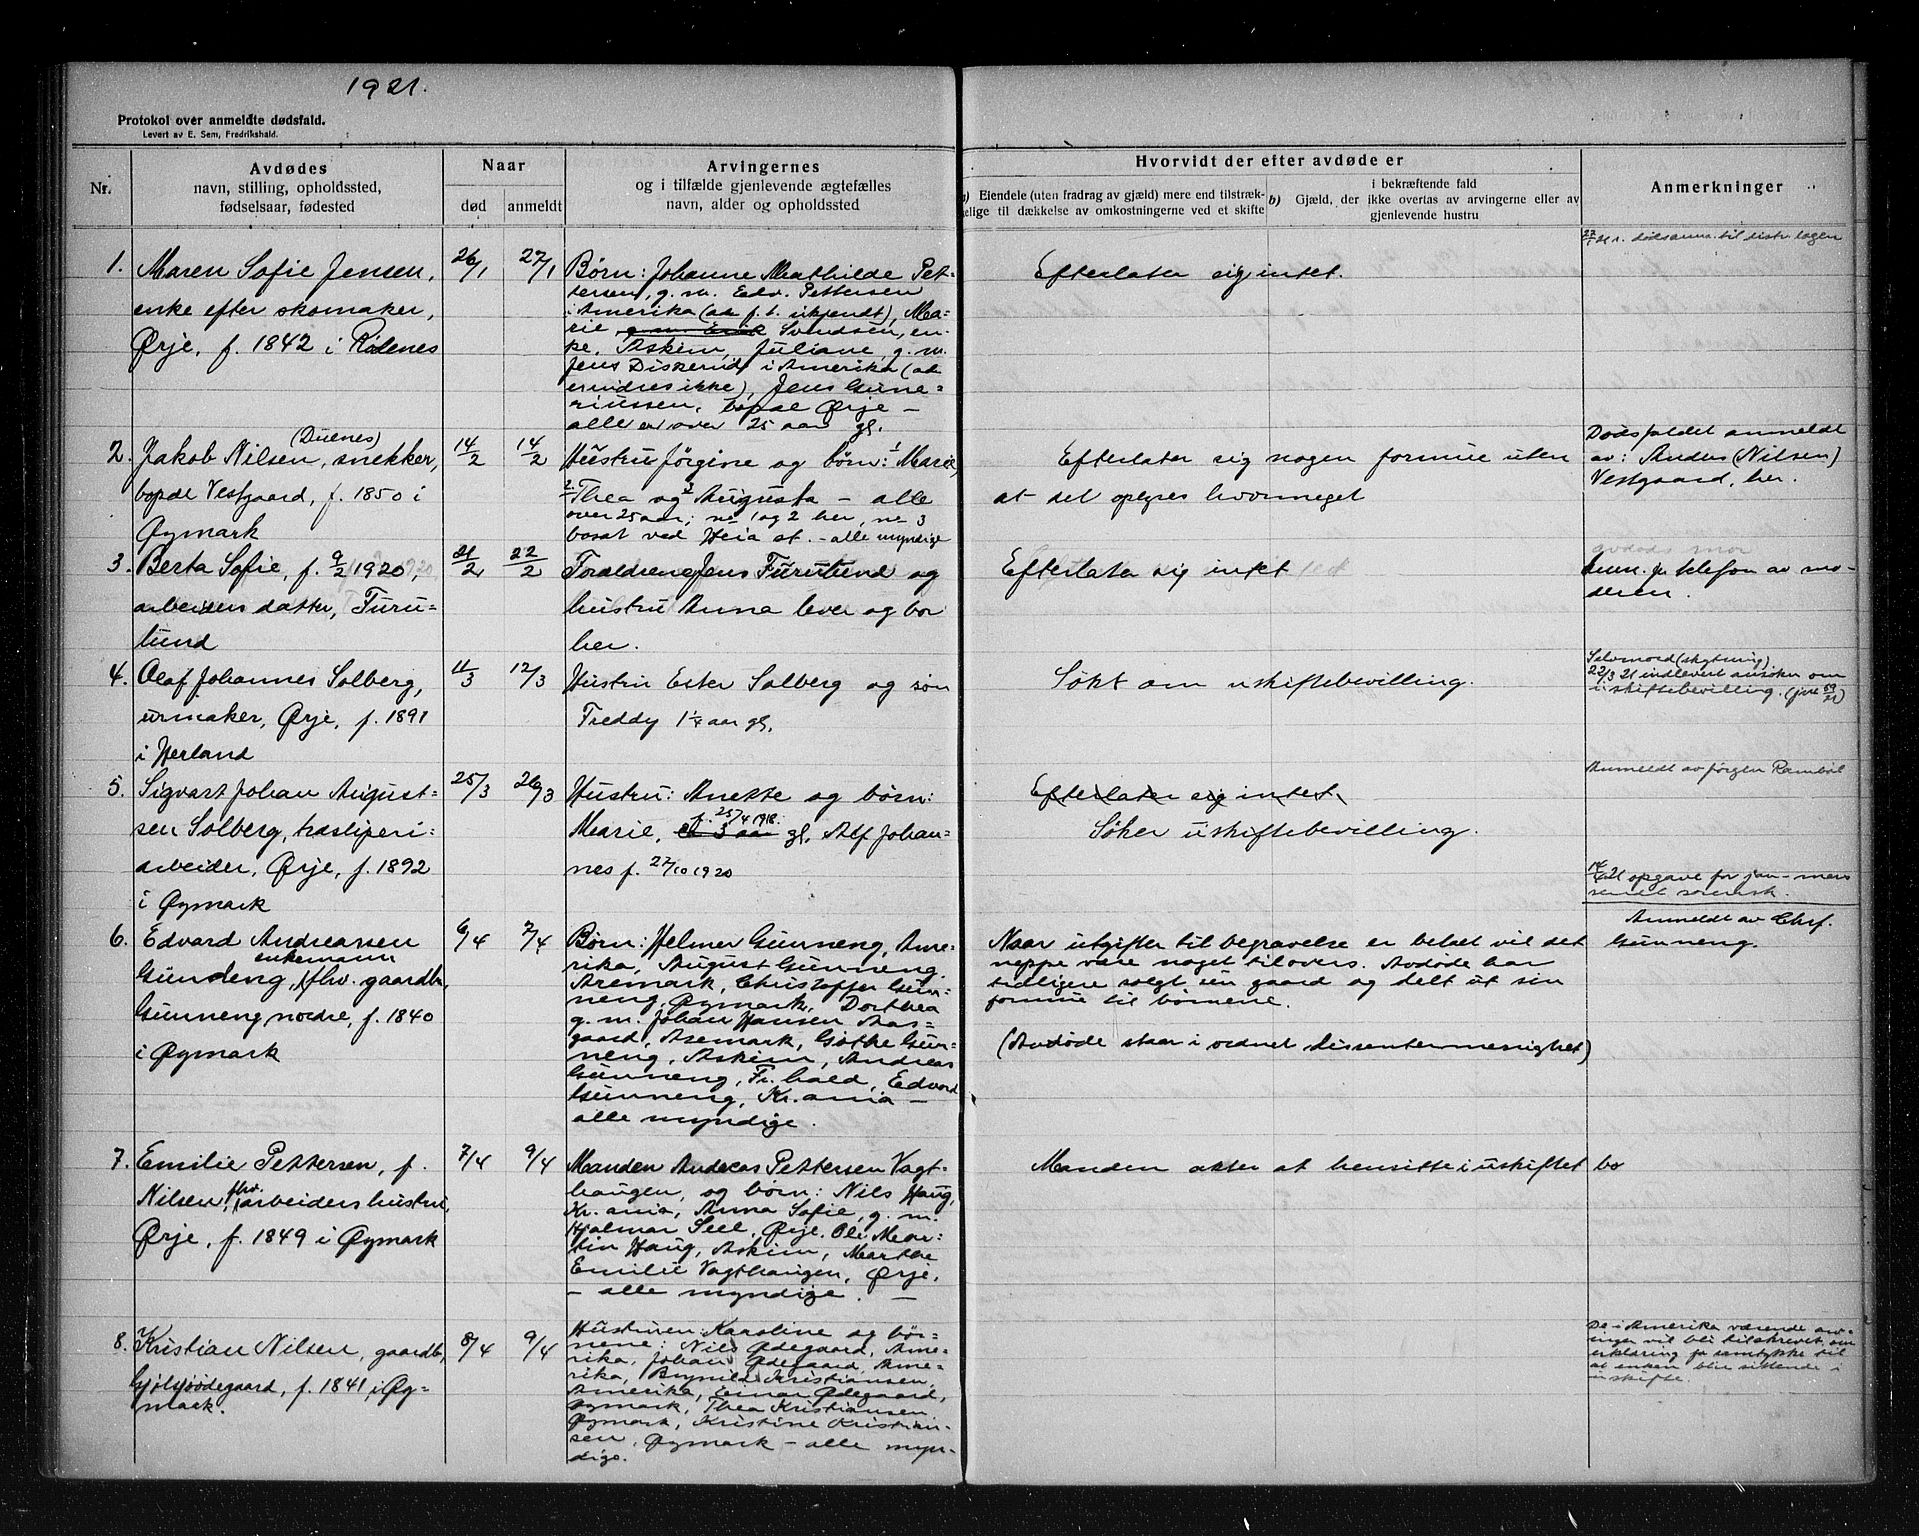 1921.
Protokol over anmeldte dødsfald.
Levert av E. Sem, Fredrikshald.
Nr.
Avdødes
navn, stilling, opholdssted,
fødselsaar, fødested
Naar
død
anmeldt
Arvingernes
og i tilfælde gjenlevende ægtefælles
navn, alder og opholdssted
Hvorvidt der efter avdøde er
a) Eiendele (uten fradrag av gjæld) mere end tilstræk-
kelige til dækkelse av omkostningerne ved et skifte
i bekræftende fald
b) Gjæld, der ikke overtas av arvingerne eller av
gjenlevende hustru
Anmerkninger
1.
Maren Sofie Jensen,
enke efter skomaker,
Ørje, f. 1842 i Rødenes
26/1
27/1
Børn: Johanne Mathilde Pet-
tersen, g. m. Edv. Pettersen
i Amerika (adr. f. t. ukjendt), Ma-
rie Svendsen, en-
ke, Askim, Juliane, g. m.
Jens Diskerud i Amerika (ad
erindres ikke), Jens Gune-
riussen, bopæl Ørje –
alle er over 25 aar gl.
Efterlater sig intet.
27/1 21. dødsanm. til distr. lægen
2.
(Duenes)
Jakob Nilsen, snekker,
bopæl Vestgaard, f. 1850 i
Øymark
14/2
14/2
Hustru Jørgine og børn: 1 Marie,
2 Thea og 3 Augusta – alle
over 25 aar; no 1 og 2 her, no 3
bosat ved Heia st. – alle myndige
Efterlater sig nogen formue uten
at det oplyses hvormeget
Dødsfaldet anmeldt
av: Anders (Nilsen)
Vestgaard, her.
3.
Berta Sofie, f. 9/2 1920,
arbeiders datter, Furu-
lund
21/2
22/2
Forældrene Jens Furulund og
hustru Anna lever og bor
her.
Efterlater sig intet
avdøds mor
anm. pr telefon av mo-
deren.
4.
Olaf Johannes Solberg,
urmaker, Ørje, f. 1891
i Herland
11/3
12/3
Hustru Ester Solberg og søn
Freddy 1 1/4 aar gl,
Søkt om uskiftebevilling.
Selvmord (skytning)
22/3 21 indlevert ansøkn om
uskiftebevilling.
5.
Sigvart Johan August-
sen Solberg, træsliperi-
arbeider, Ørje, f. 1892
i Øymark
25/3
26/3
Hustru: Anette og børn:
f. 25/4 1918.
Marie, ca 3 aar gl, Alf Johan-
nes f. 27/10 1920
Efterlater sig intet.
Søker uskiftebevilling.
Anmeldt av Jørgen Rambøl
opgave for jan – mars
sendt sorensk.
6.
Edvard Andreassen
enkemann
Gundeng, fhv. gaardbr,
Gunneng nordre, f. 1840
i Øymark
6/4
7/4
Børn: Helmer Gunneng, Ame-
rika, August Gunneng,
Aremark, Christoffer Gun-
neng, Øymark, Dorthea
g. m. Johan Hansen Aas-
gaard, Aremark, Gothe Gun-
neng, Askim, Andreas
Gunneng, Fr. hald, Edvard
Gunneng, Kr. ania –
alle myndige.
Naar utgifter til begravelse er betalt vil det
neppe være noget tilovers. Avdøde har
tidligere solgt sin gaard og delt ut sin
formue til børnene.
(Avdøde staar i ordnet dissentermenighet)
Anmeldt av Chrf.
Gunneng.
7.
Emilie Pettersen, f.
Nilsen, fhv. arbeiders hustru,
Ørje, f. 1849 i Øymark
7/4
9/4
Manden Andreas Pettersen Vagt-
haugen, og børn: Nils Haug,
Kr. ania, Anna Sofie, g. m.
Hjalmar Seel, Ørje, Ole Mar-
tin Haug, Askim, Marthe
Emilie Vagthaugen, Ørje,
– alle myndige. –
Manden akter at hensitte i uskiftet bo
8.
Kristian Nilsen, gaardbr,
Gjølsjøødegaard, f. 1841 i Øy-
mark.
8/4
9/4
Hustruen: Karoline og bør-
nene: Nils Ødegaard, Ame-
rika, Johan Ødegaard, Ame-
rika, Brynild Kristiansen,
Amerika, Einar Ødegaard,
Øymark, Thea Kristiansen
Øymark, Kristine Kristian-
sen, Øymark – alle myn-
dige.
De i Amerika værende arv-
inger vil bli tilskrevet om
erklæring for samtykke til
at enken blir sittende i
uskifte.